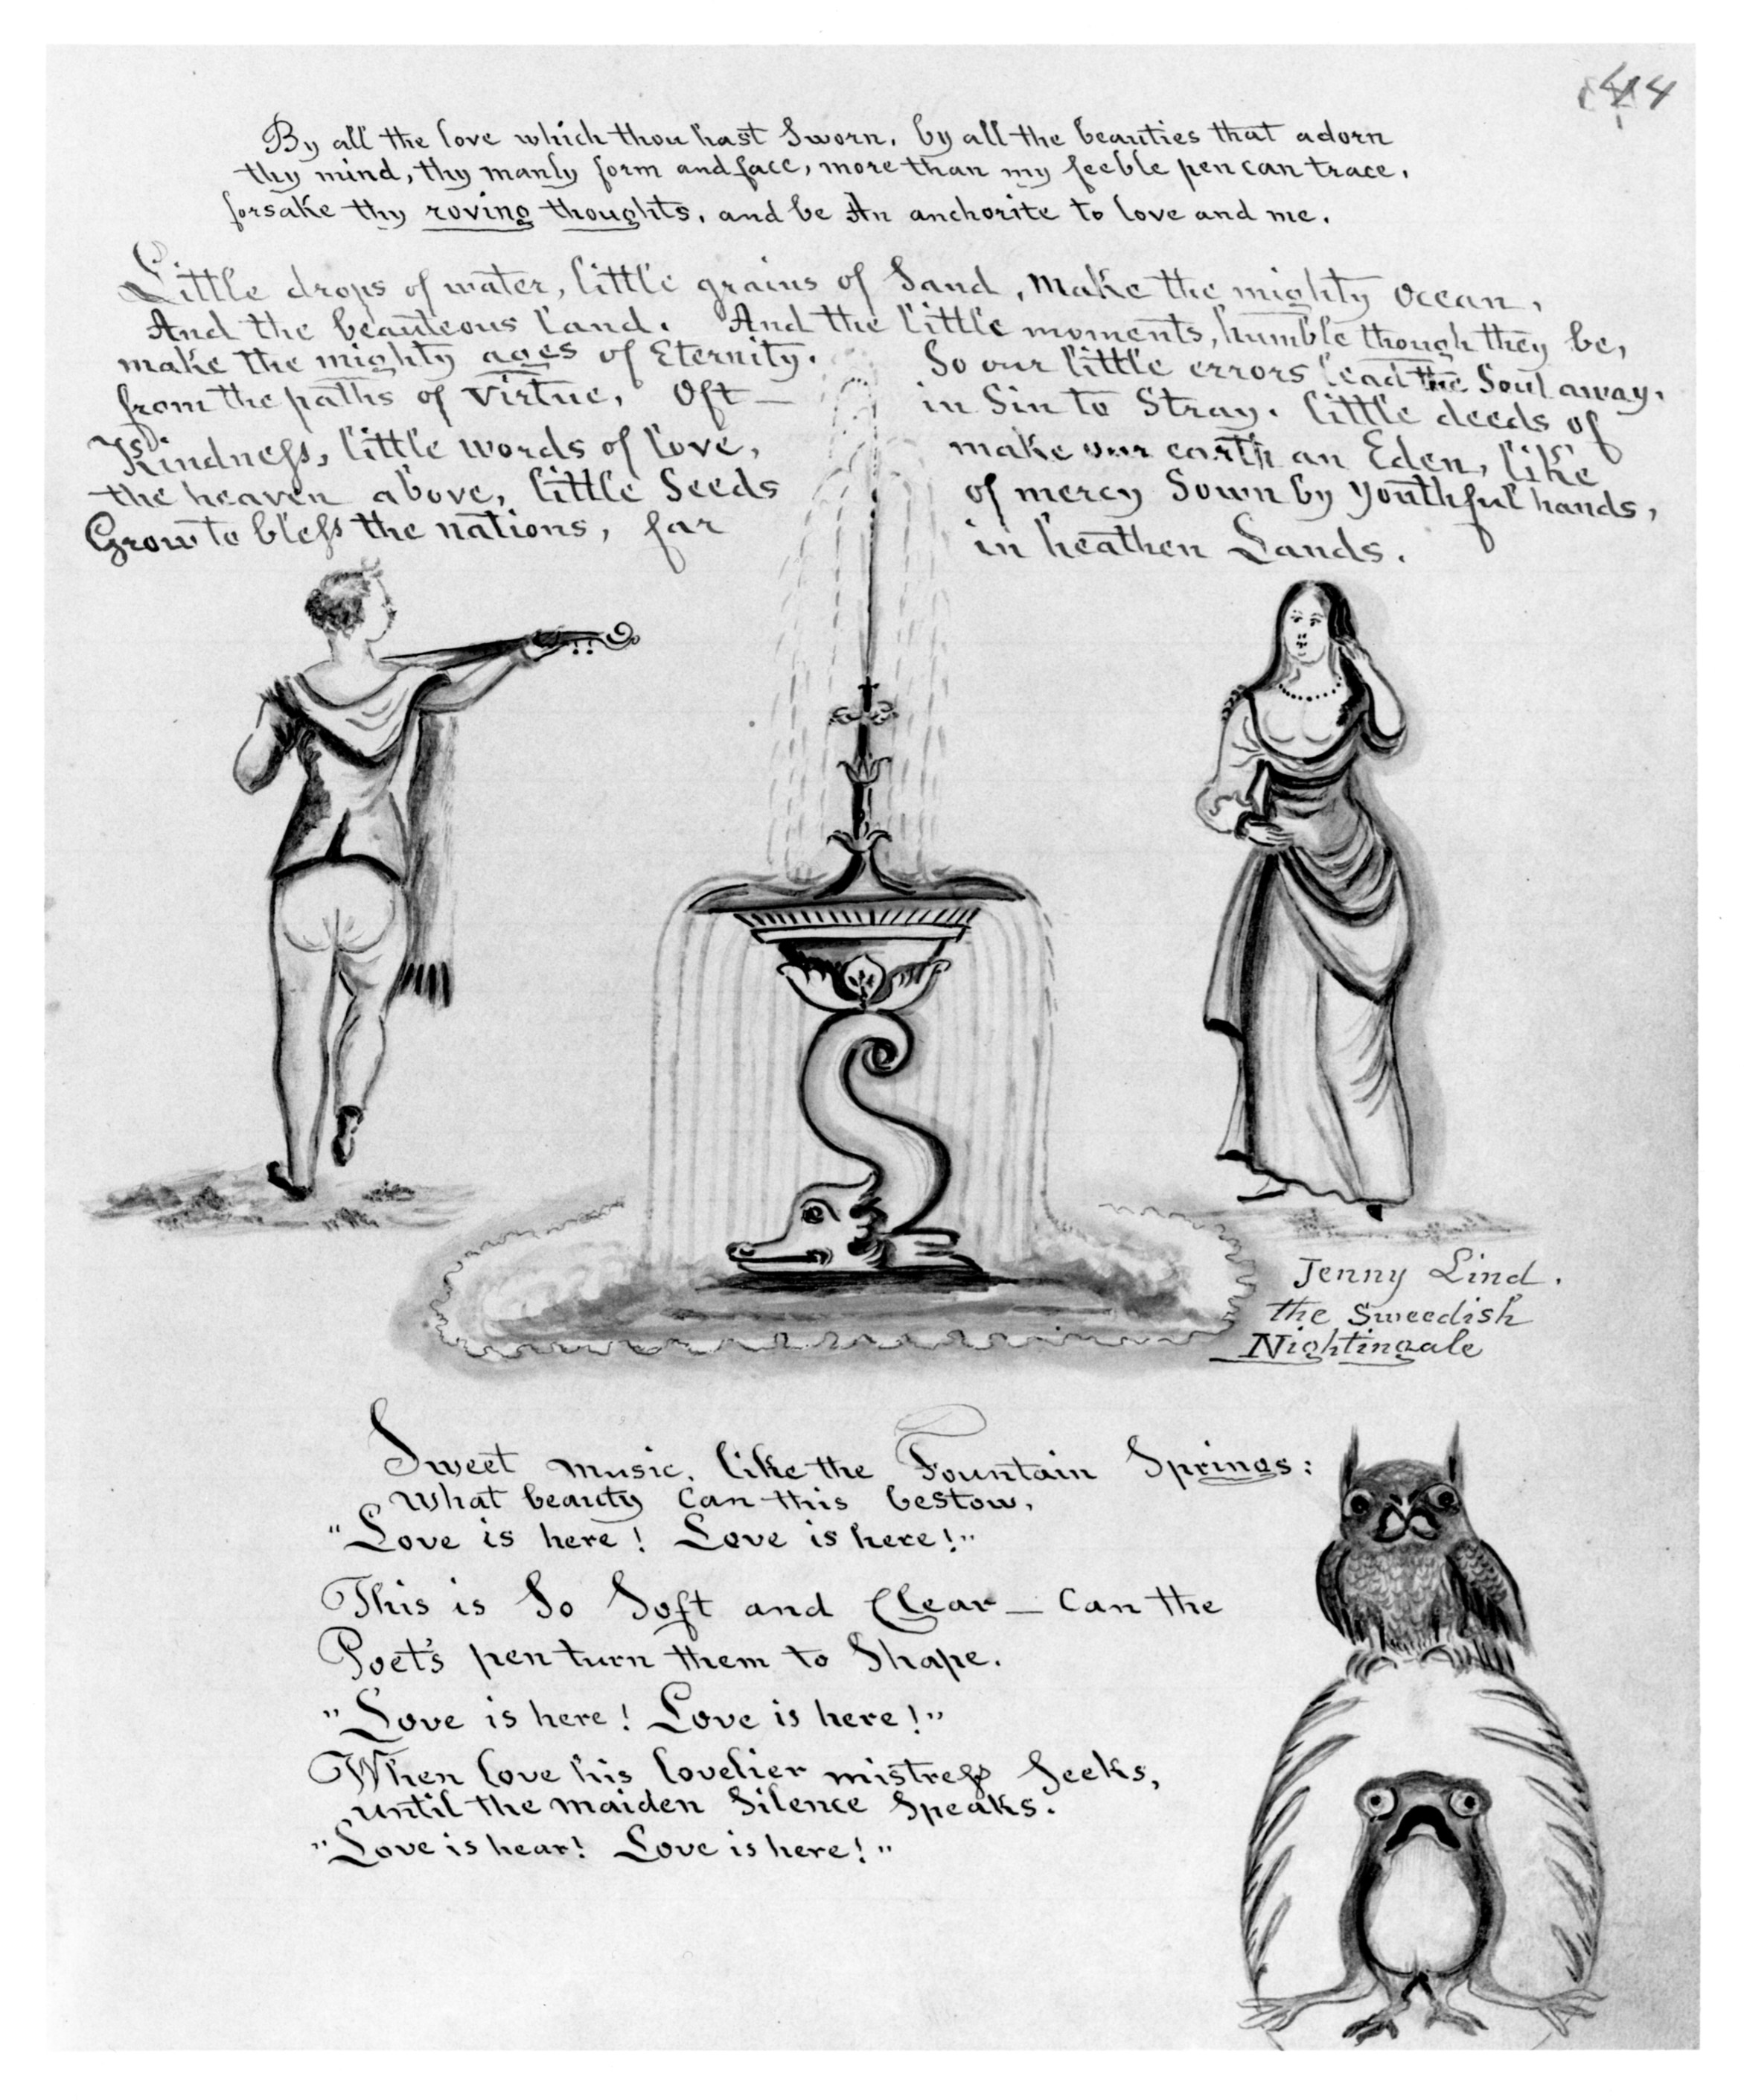 44
By all the love which thou hast Sworn, by all the beauties that adorn
thy mind, thy manly form and face, more than my feeble pen can trace,
forsake thy roving thoughts, and be An anchorite to love and me.
Little drops of water, little grains of Sand, make the mighty Ocean,
And the beauteous land. And the little moments, humble though they be,
make the mighty ages of Eternity. So our little errors lead the Soul away,
from the paths of virtue, Oft — in Sin to Stray. little deeds of
Kindness, little words of love, make our earth an Eden, like
the heaven above, little Seeds of mercy Sown by youthful hands,
Grow to bless the nations, far in heathen Lands.
Jenny Lind.
the Sweedish
Nightingale
Sweet music, like the Fountain Springs:
What beauty can this bestow,
"Love is here! Love is here!"
This is So Soft and Clear — Can the
Poet's pen turn them to Shape.
"Love is here! Love is here!"
When love his lovelier mistress Seeks,
until the maiden Silence Speaks.
"Love is hear! Love is here!"